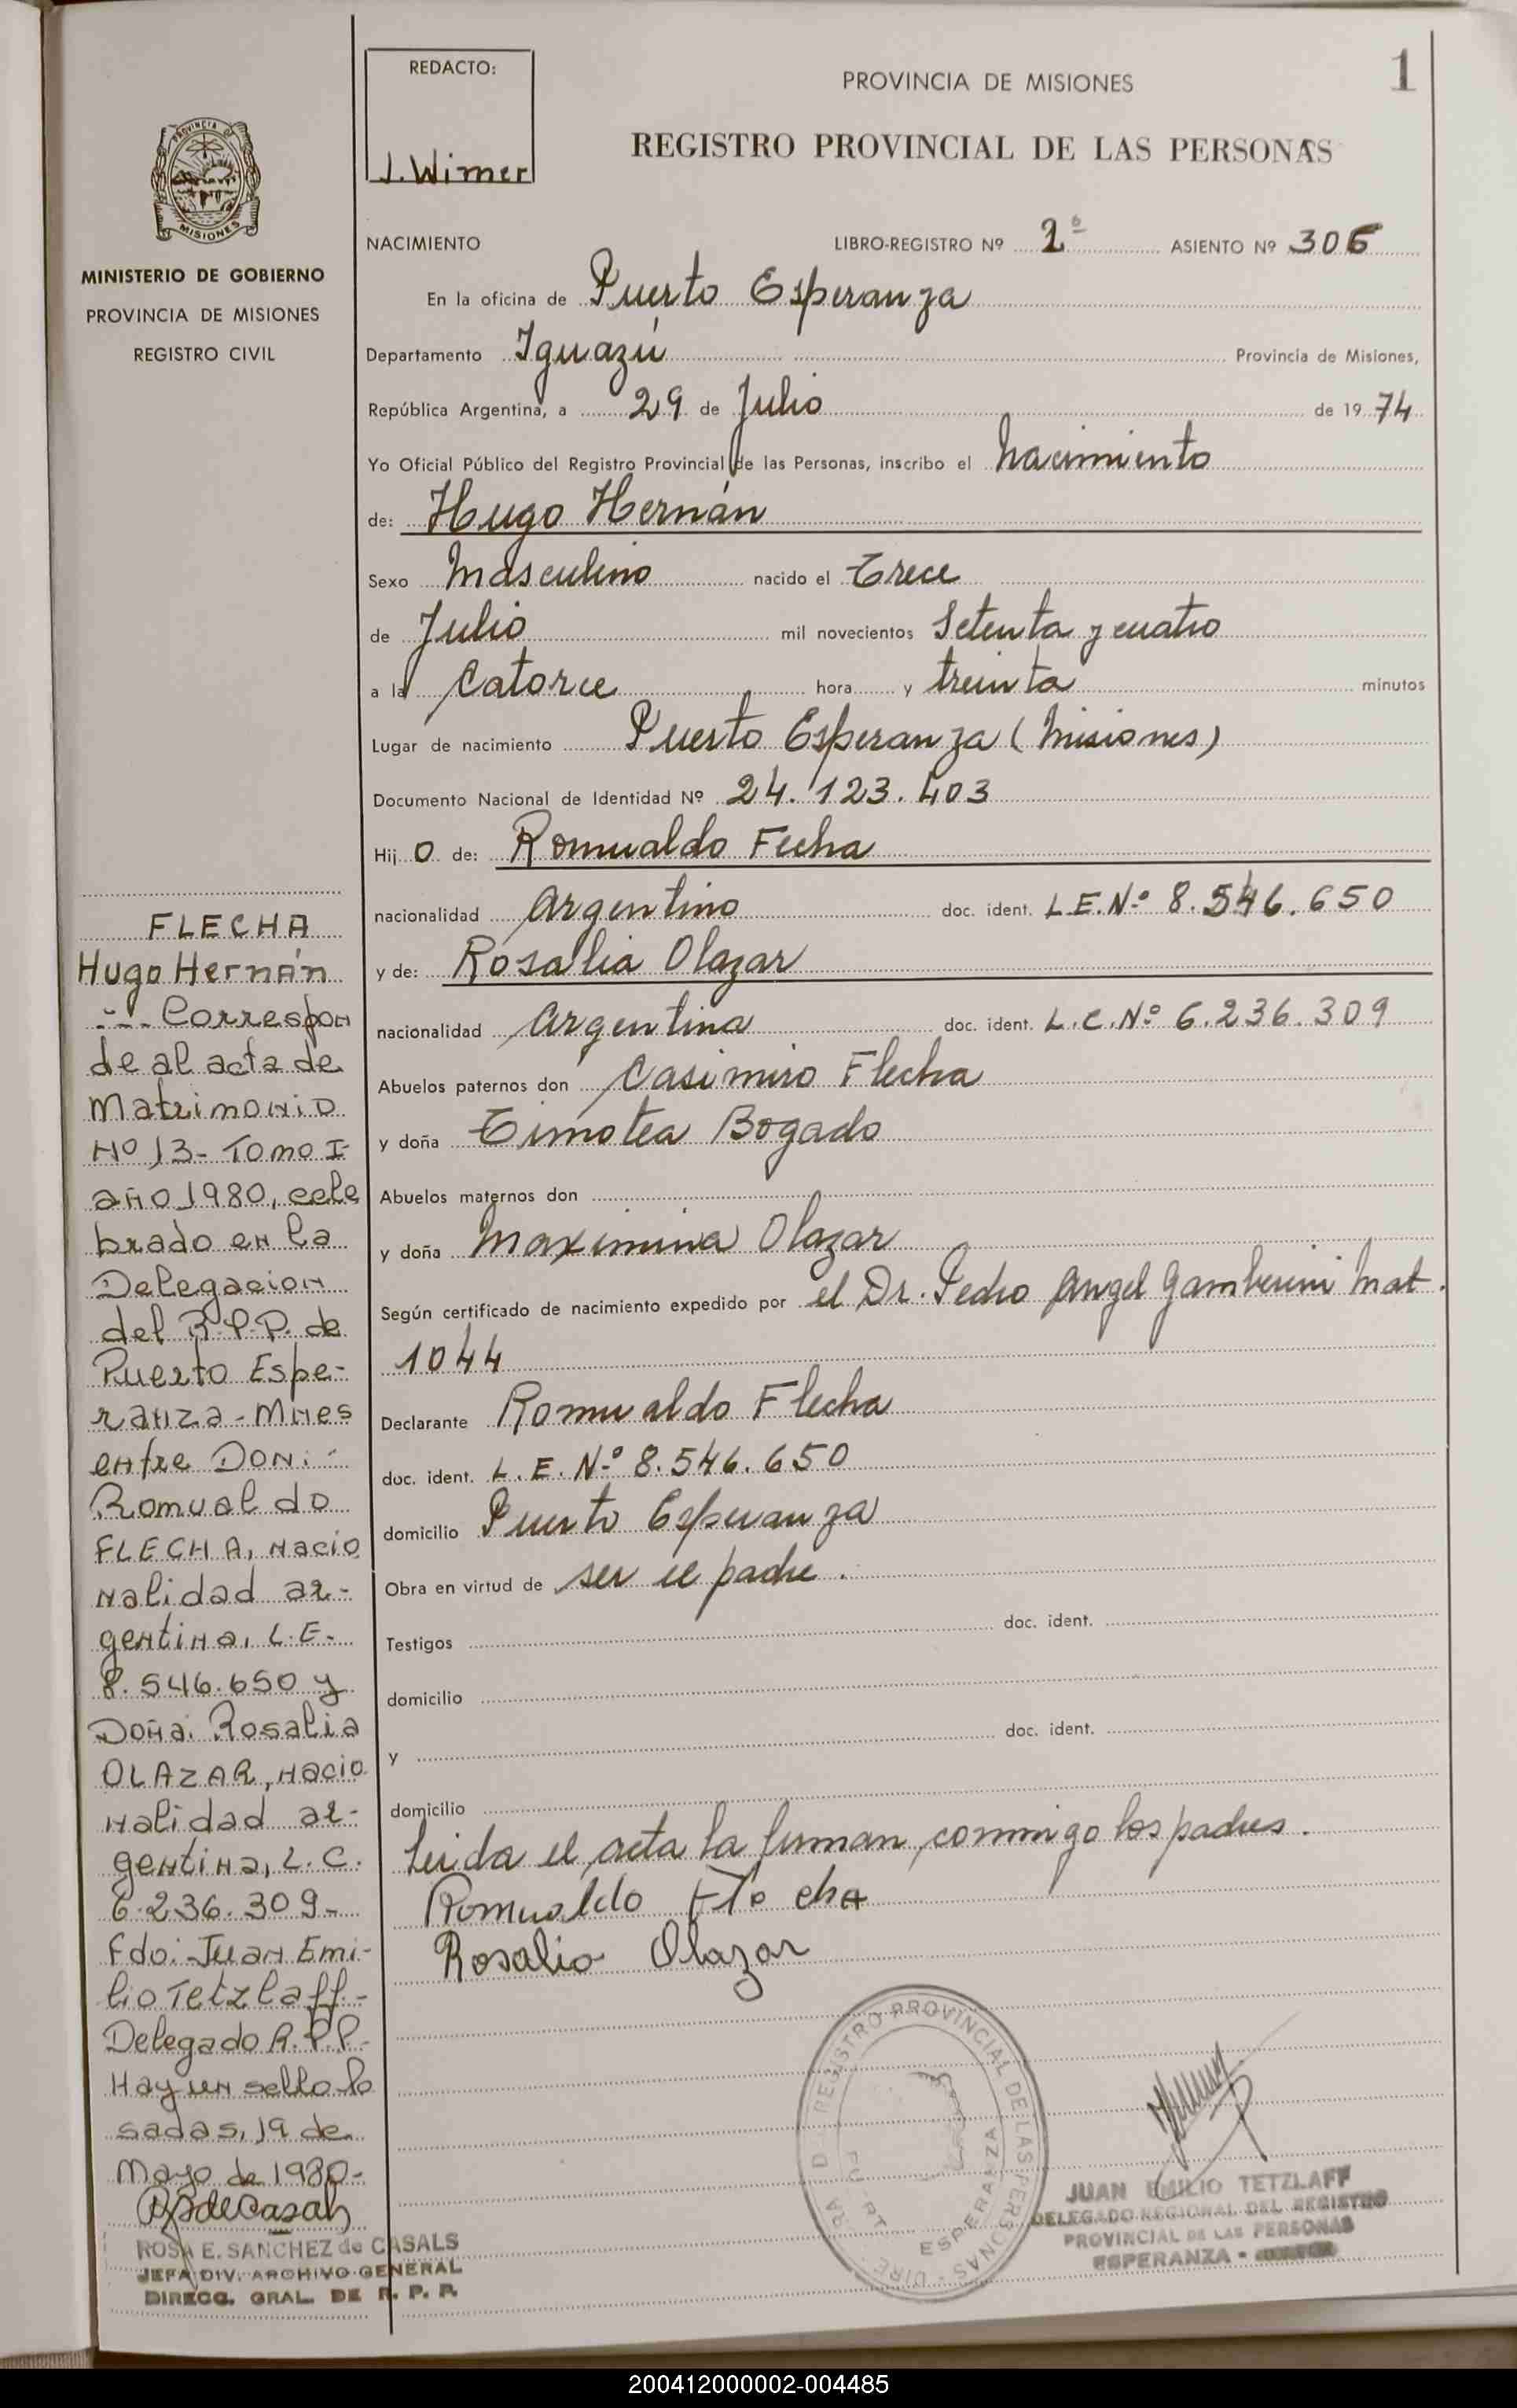 REDACTO:
J. Wimer
PROVINCIA DE MISIONES
1
REGISTRO PROVINCIAL DE LAS PERSONAS
PROVINCIA DE
MISIONES
MINISTERIO DE GOBIERNO
PROVINCIA DE MISIONES
REGISTRO CIVIL
NACIMIENTO LIBRO-REGISTRO Nº 2º ASIENTO Nº 306
En la oficina de Puerto Esperanza
Departamento Iguazú Provincia de Misiones,
República Argentina, a 29 de Julio de 1974
Yo Oficial Público del Registro Provincial de las Personas, inscribo el nacimiento
de: Hugo Hernán
Sexo Masculino nacido el Trece
de Julio mil novecientos Setenta y cuatro
a la Catorce hora y treinta minutos
Lugar de nacimiento Puerto Esperanza (Misiones)
Documento Nacional de Identidad Nº 24.123.403
Hij o de: Romualdo Fecha
nacionalidad Argentino doc. ident. L.E.Nº 8.546.650
y de: Rosalia Olazar
nacionalidad Argentina doc. ident. L.C.Nº 6.236.309
Abuelos paternos don Casimiro Flecha
y doña Timotea Bogado
Abuelos maternos don
y doña Maximina Olazar
Según certificado de nacimiento expedido por el Dr. Pedro Angel Gamberini Mat.
1044
Declarante Romualdo Flecha
doc. ident. L.E. Nº 8.546.650
domicilio Puerto Esperanza
Obra en virtud de ser el padre.
Testigos doc. ident.
domicilio
y doc. ident.
domicilio
Leida el acta la firman conmigo los padres.
Romualdo Flecha
Rosalia Olazar
FLECHA
Hugo Hernán
Correspon
de al acta de
Matrimonio
Nº 13- Tomo I-
año 1980, cele
brado en la
Delegacion
del R.P.P. de
Puerto Espe-
ranza-Mnes
entre DON:
Romualdo
FLECHA, nacio
nalidad ar-
gentina, L.E.
8.546.650 y
Doña: Rosalia
OLAZAR, nacio
nalidad ar-
gentina, L.C.
6.236.309-
fdo: Juan Emi-
lio Tetzlaff-
Delegado R.P.P.-
Hay un sello Po
sadas, 19 de
Mayo de 1980-
ROSA E. SANCHEZ de CASALS
JEFA DIV. ARCHIVO GENERAL
DIRECC. GRAL. DE R. P. P.
REGISTRO PROVINCIAL DE LAS PERSONAS
ESPERANZA
JUAN EMILIO TETZLAFF
DELEGADO REGIONAL DEL REGISTRO
PROVINCIAL DE LAS PERSONAS
ESPERANZA -
200412000002-004485